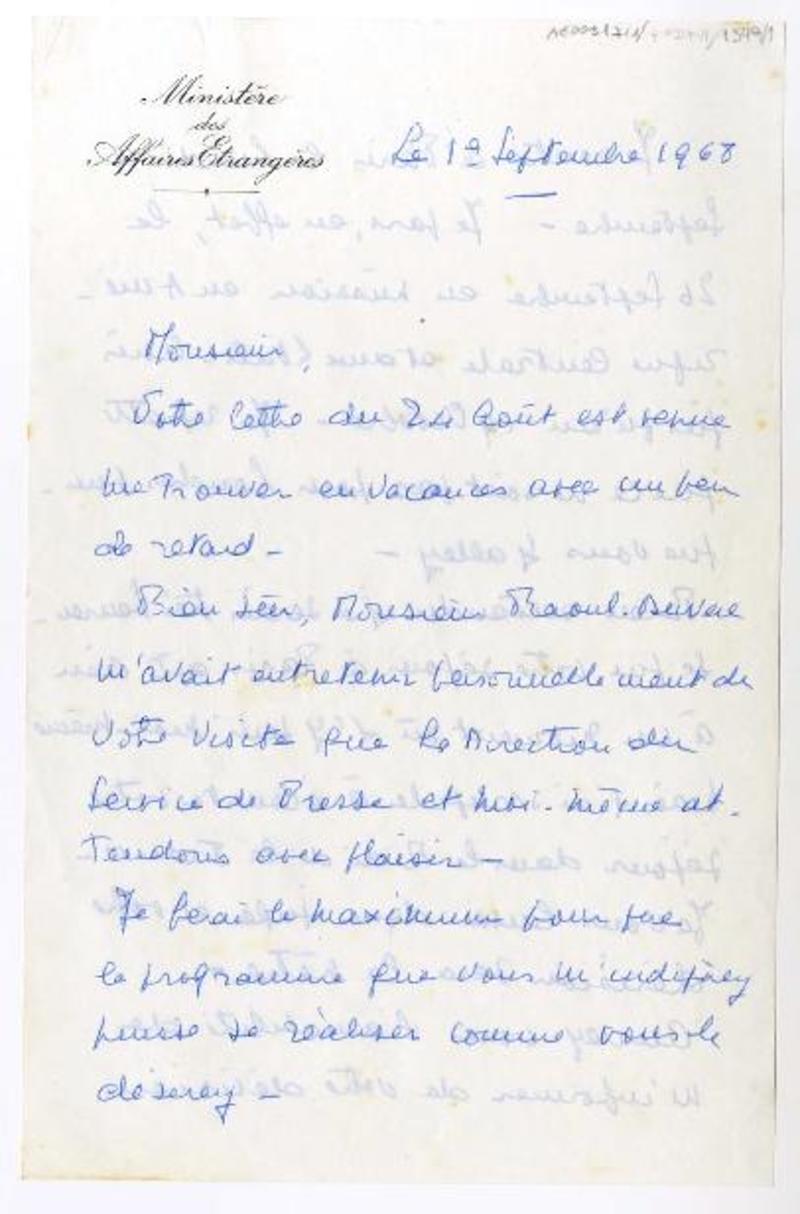 Ministère
des
Affaires Etrangères
Le 19 Septembre 1968
Monsieur,
Votre lettre du 24 Août est venue
me trouver en vacances avec un peu
de retard -
Bien sûr, Monsieur Raoul-Duval
m'avait entretenu personnellement de
votre visite que la Direction du
Service de Presse et moi-même at-
tendons avec plaisir -
Je ferai le maximum pour que
le programme que vous m'indiquez
puisse se réaliser comme vous le
désirez -